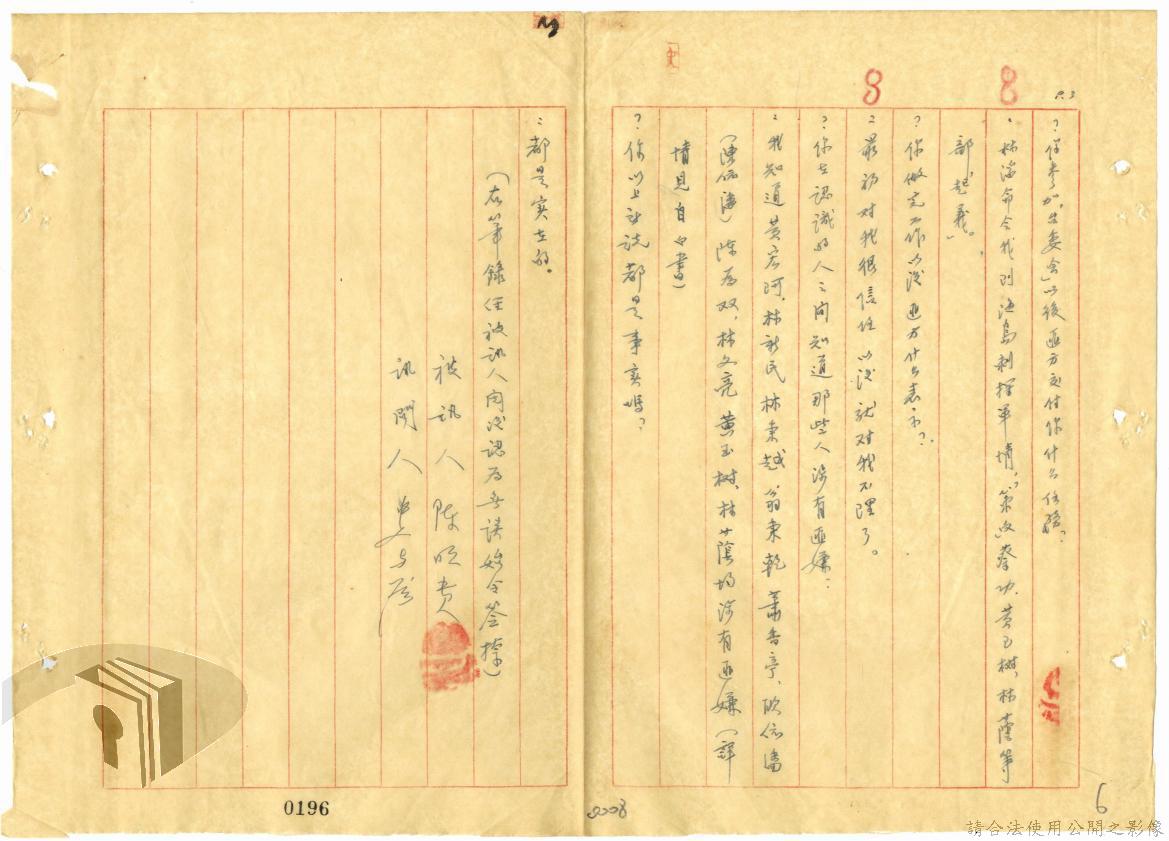 8
8
？你參加"出委會"以後匪方交付你什么任務？
：林滔命令我到海島刺探軍情，"策"反蔡功、黃玉樹、林蔭等
部"起義"。
？你做完工作以後匪方什么表示？
：最初對我很信任以後就对我不理了。
？你在認識的人之間知道那些人涉有匪嫌？
：我知道黃宏阿、林新民林東越翁東乾蕭香亭、欧依潘
（陳依清）陳為双，林文亮黃玉樹、林蔭均涉有匪嫌（詳
情見自白書）
？你以上所説都是事实嗎？
：都是实在的。
（右筆錄任被訊人閱後認為無誤始令簽押）
被訊人陳
訊問人
0196
8008
6
請合法使用公開之影像